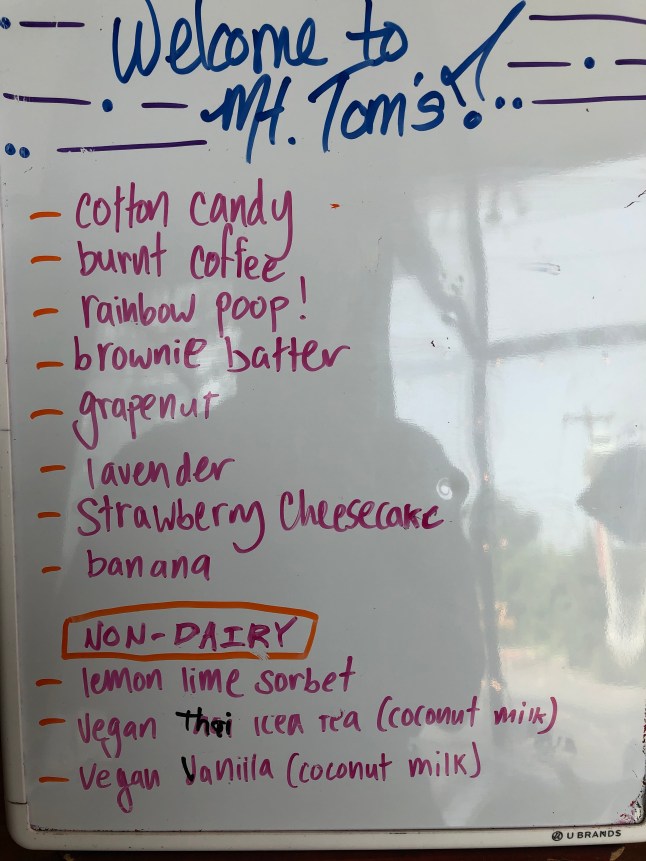 Welcome to
Mt. Tom's!
- cotton candy
- burnt coffee
- rainbow poop!
- brownie batter
- grapenut
- lavender
- Strawberry Cheesecake
- banana
NON-DAIRY
- lemon lime sorbet
- vegan Thai Icea Tea (coconut milk)
- vegan Vanilla (coconut milk)
U BRANDS